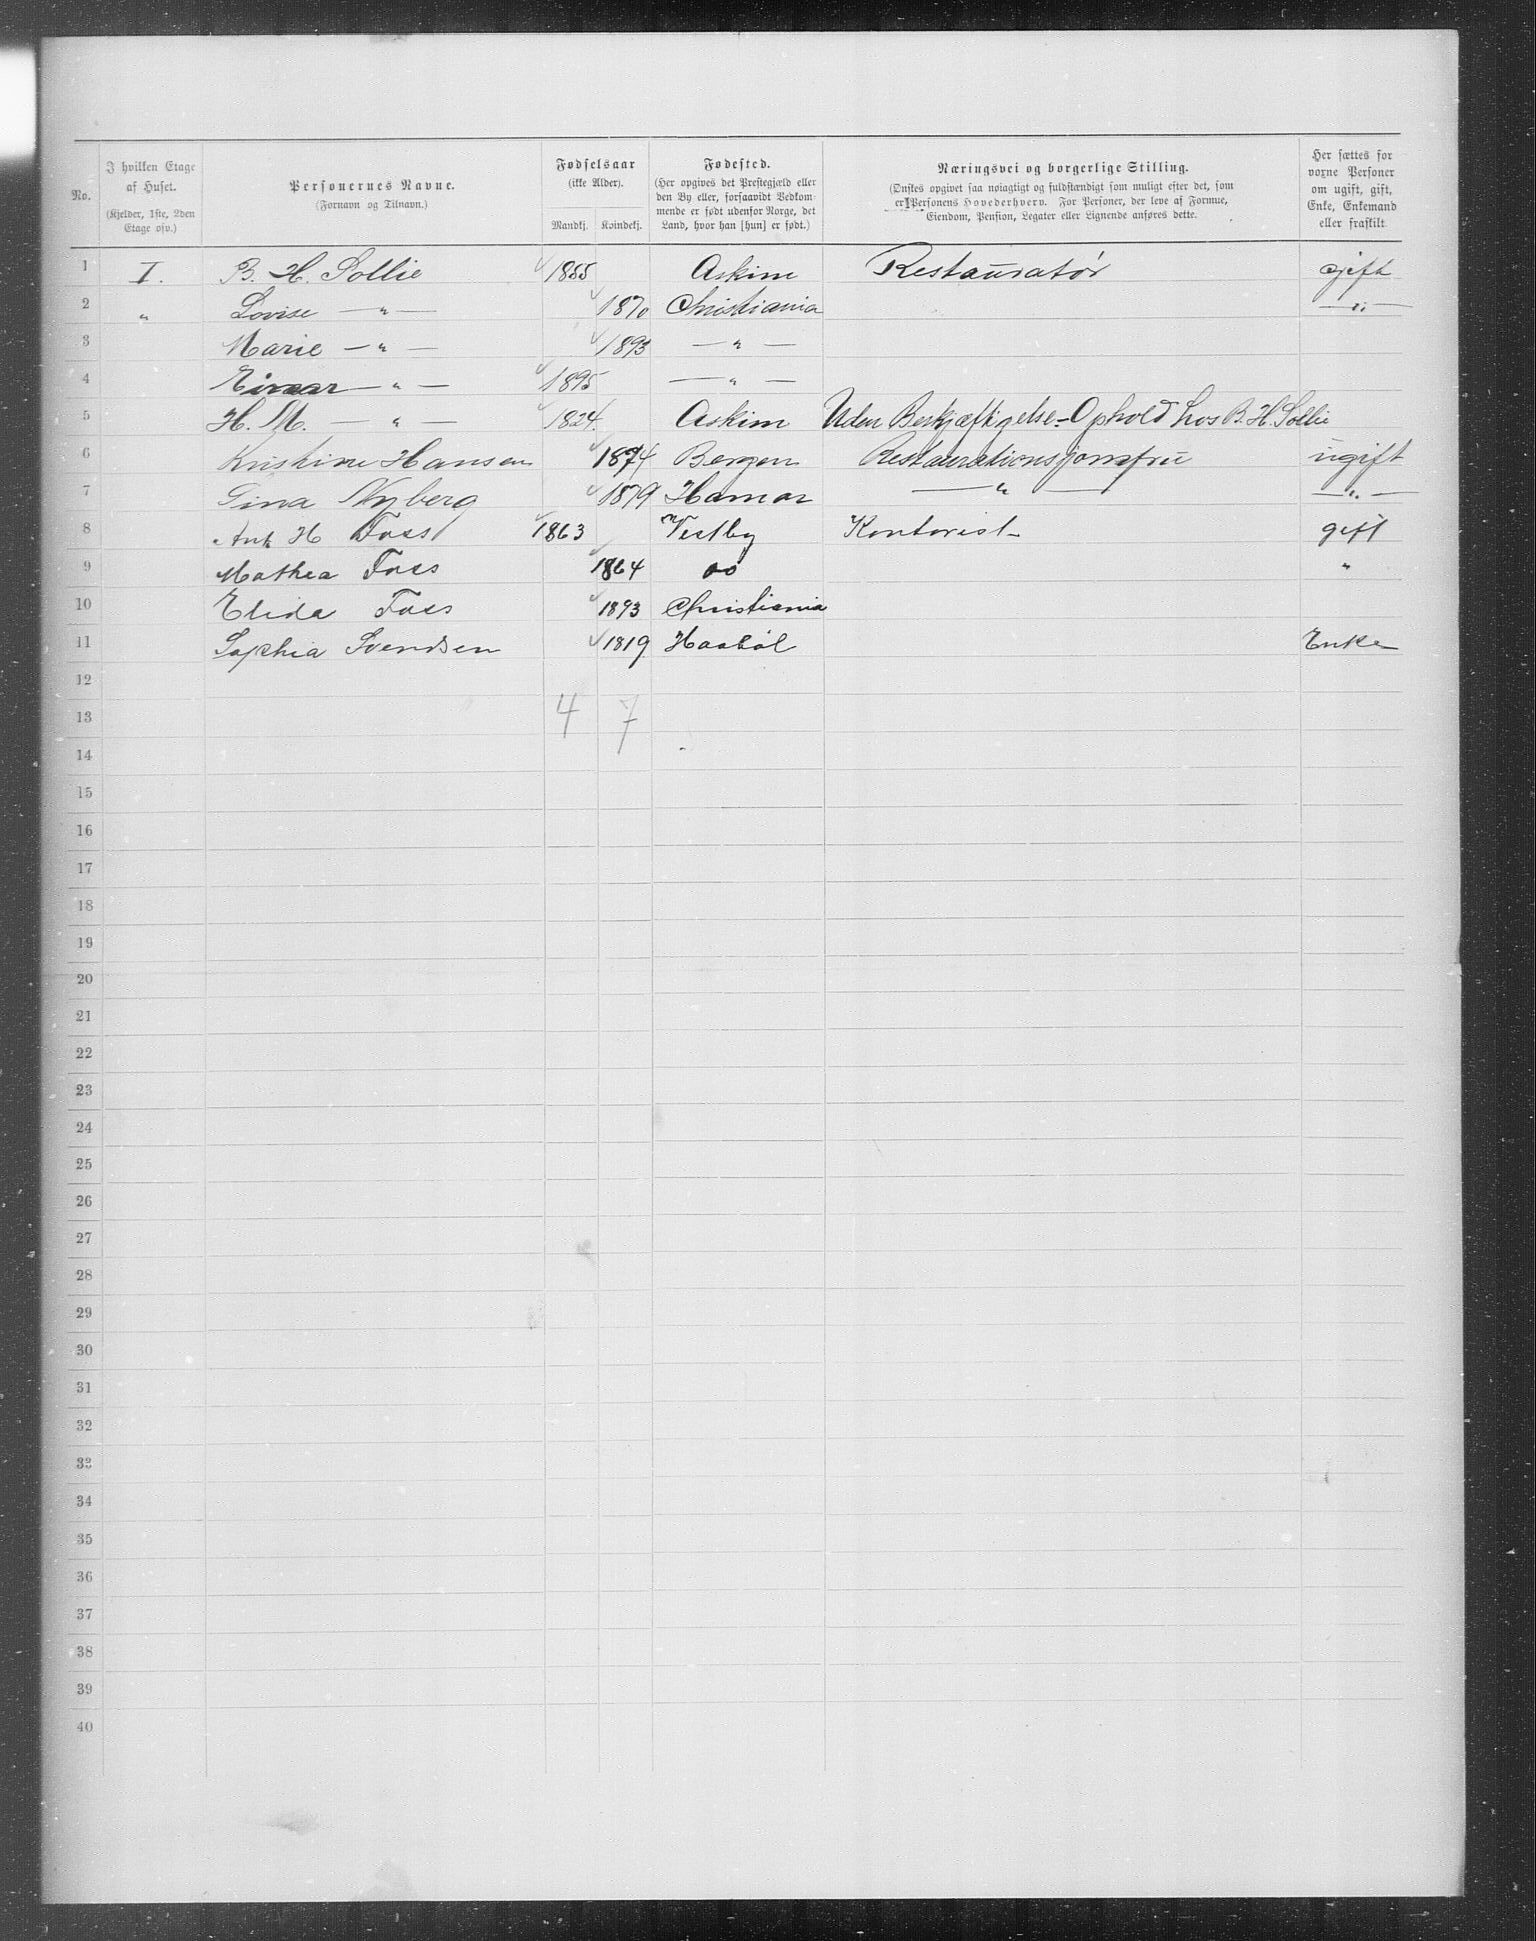 No.
I hvilken Etage af Huset. (Kjelder, 1ste, 2den Etage osv.)
Personernes Navne. (Fornavn og Tilnavn.)
Fødselsaar (ikke Alder). Mandkj. Kvindekj.
Fødested. (Her opgives det Prestegjæld eller den By eller, forsaavidt Vedkommende er født udenfor Norge, det Land, hvor han [hun] er født.)
Næringsvei og borgerlige Stilling. (Ønskes opgivet saa nøiagtigt og fuldstændigt som muligt efter det, som er Personens Hovederhverv. For Personer, der leve af Formue, Eiendom, Pension, Legater eller Lignende anføres dette.
Her sættes for voxne Personer om ugift, gift, Enke, Enkemand eller fraskilt.
1 I. B. H. Sollie 1855 Askim Restauratør gift
2 " Lovise — " — 1870 Christiania — " —
3 Marie — " — 1893 — " —
4 Einar — " — 1895 — " —
5 H. M. — " — 1824. Askim Uden Beskjæftigelse - Ophold hos B. H. Sollie
6 Kristine Hansen 1874 Bergen Restaurationsjomfru ugift
7 Gina Nyberg 1879 Hamar — " — — " —
8 Ant. H Foss 1863 Vestby Kontorist gift
9 Mathea Foss 1864 do "
10 Elida Foss 1893 Christiania
11 Sophia Svendsen 1819 Haabøl Enke
12
13 4 7
14
15
16
17
18
19
20
21
22
23
24
25
26
27
28
29
30
31
32
33
34
35
36
37
38
39
40